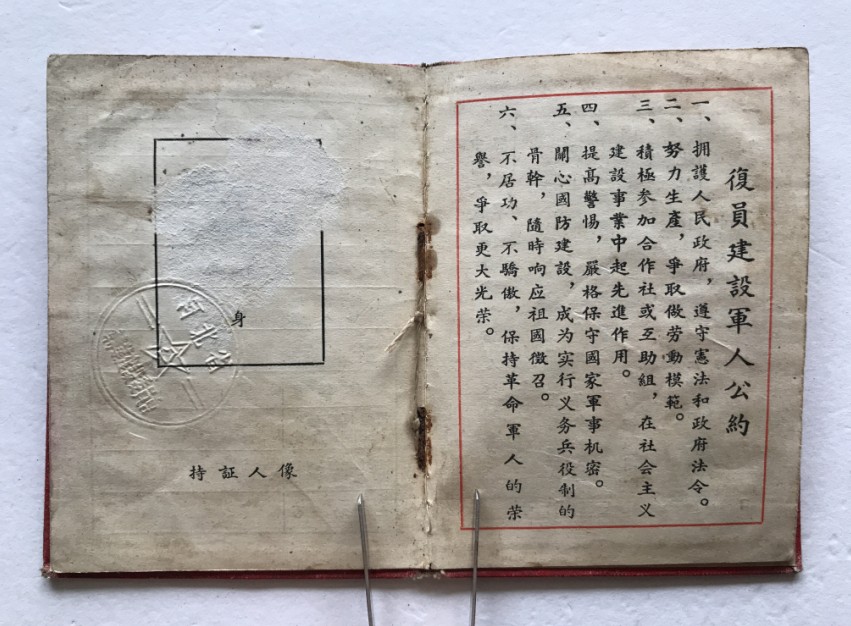 復員建設軍人公約
一、擁護人民政府，遵守憲法和政府法令。
二、努力生產，爭取做勞動模範。
三、積極參加合作社或互助組，在社会主义
建設事業中起先進作用。
四、提高警惕，嚴格保守國家軍事机密。
五、關心國防建設，成为实行义务兵役制的
骨幹，隨時响应祖國徵召。
六、不居功、不驕傲，保持革命軍人的荣
譽，爭取更大光荣。
身
持証人像
河北省